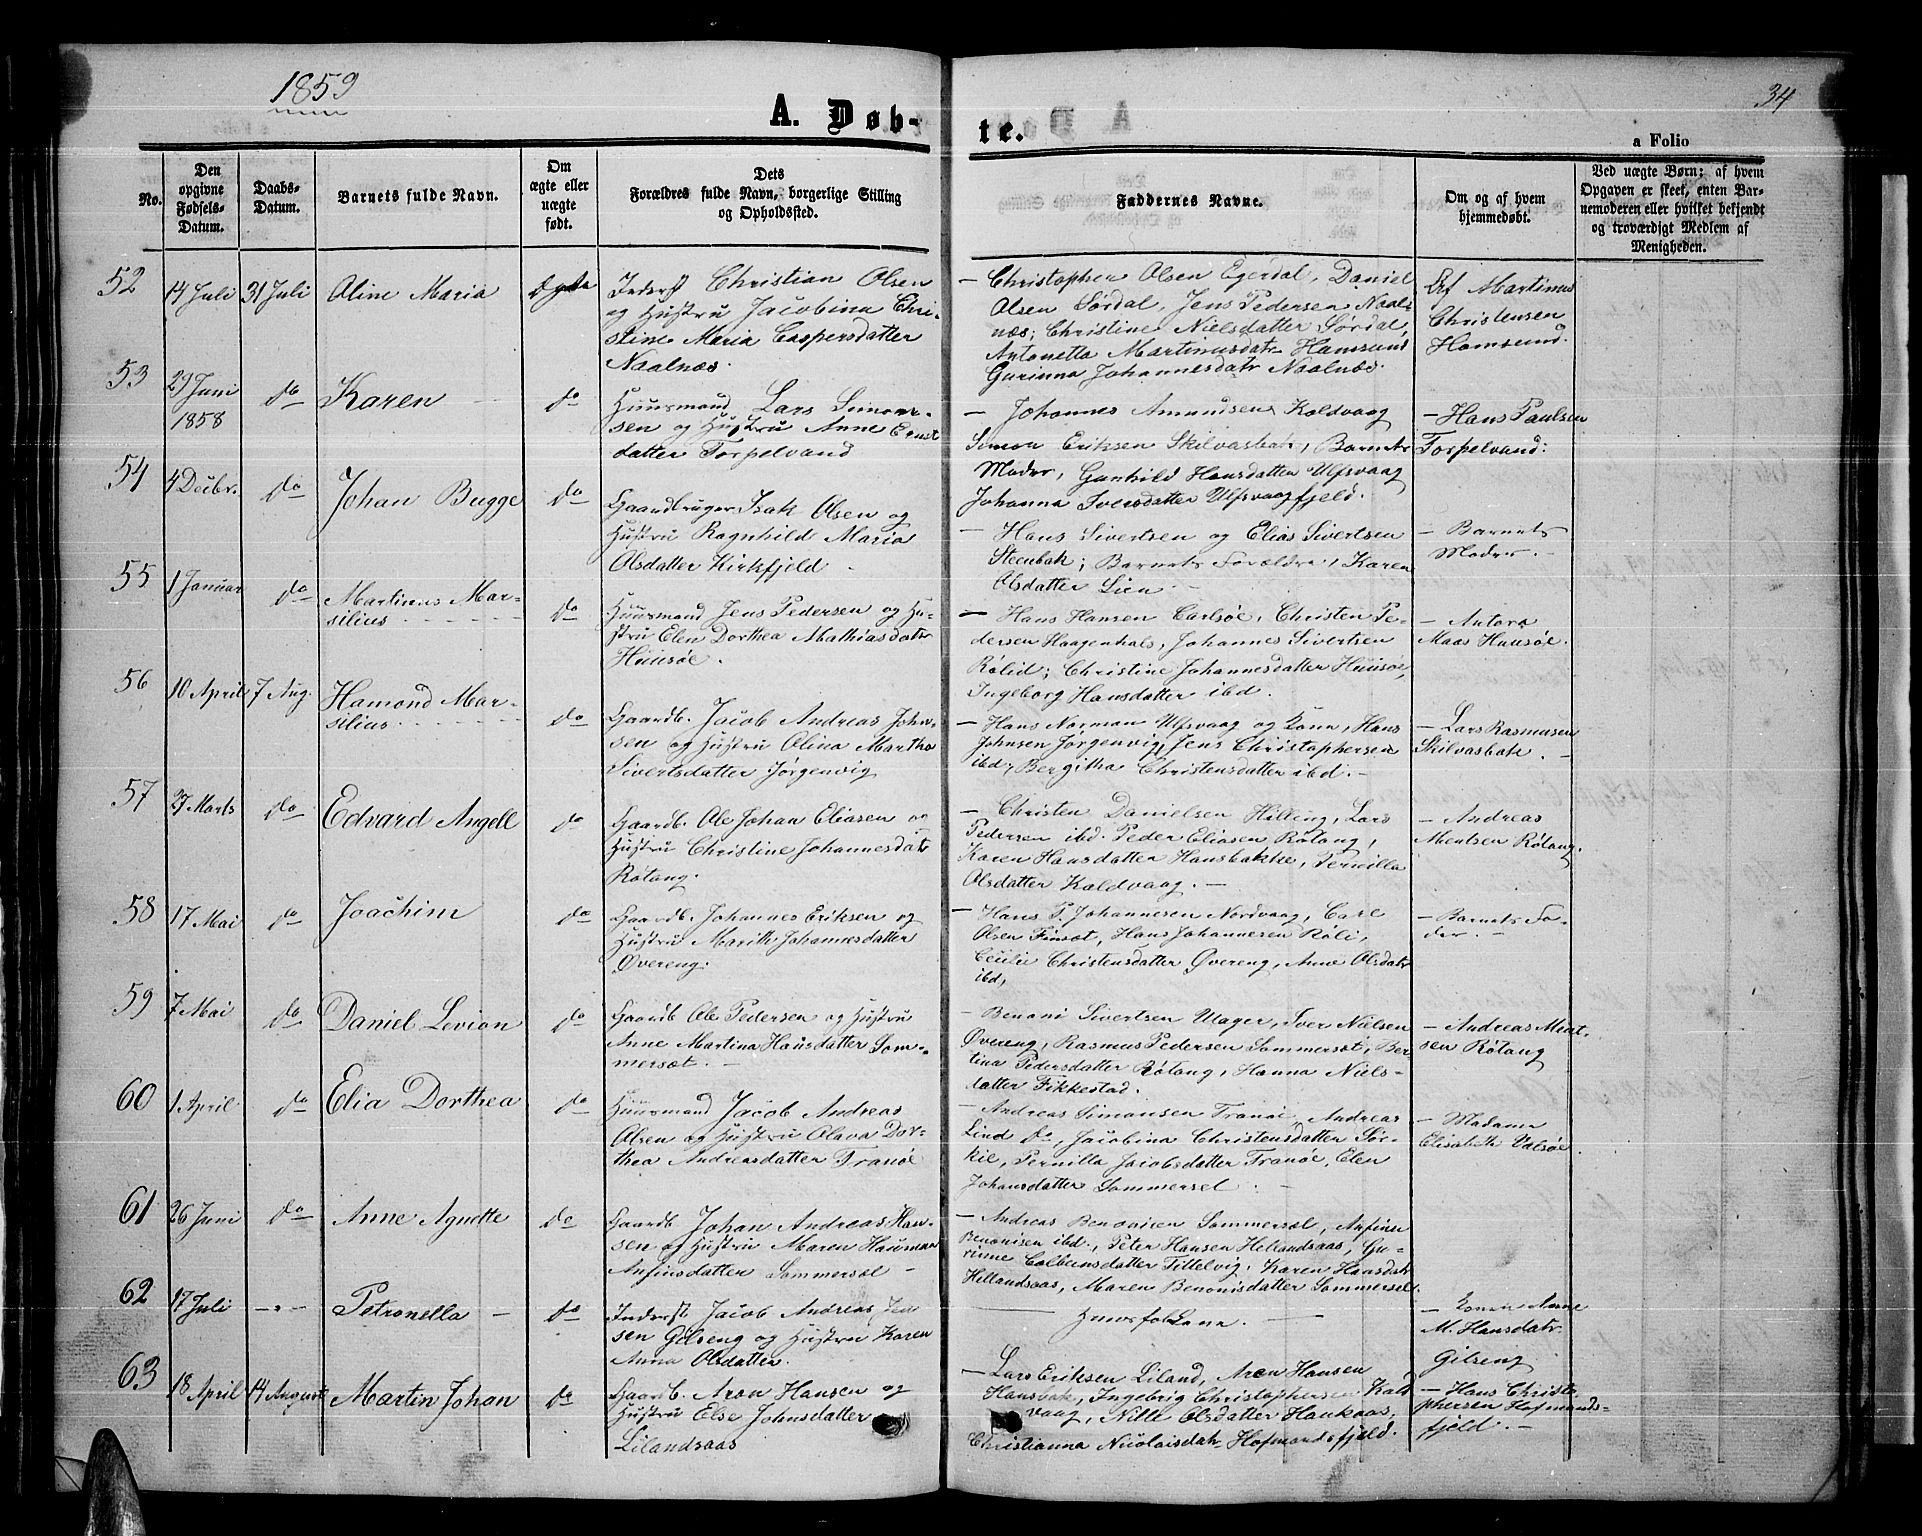 1859
34
A. Døb-
te.
a Folio
No.
Den
opgivne
Fødsels-
Datum.
Daabs-
Datum.
Barnets fulde Navn.
Om
ægte eller
uægte
født.
Dets
Forældres fulde Navn, borgerlige Stilling
og Opholdssted.
Faddernes Navne.
Om og af hvem
hjemmedøbt.
Ved uægte Børn; af hvem
Opgaven er skeet, enten Bar-
nemoderen eller hvilket bekjendt
og troværdigt Medlem af
Menigheden.
52
14 Juli
31 Juli
Oline Maria
Inderst Christian Olsen
og Hustru Jacobina Chri-
stine Maria Caspersdatter
Naalnæs.
— Christopher Olsen Egerdal, Daniel
Olsen Sørdal, Jens Pedersen Naal-
næs; Christine Nielsdatter Sørdal,
Antonetta Martinusdatr Hamsund
Gurinna Johannesdatr Naalnæs.
Af Martinus
Christensen
Hamsund.
53
29 Juni
1858
do
Karen
do
Huusmand Lars Simon-
sen og Hustru Anne Ernst
datter Torpelvand
— Johannes Amundsen Kaldvaag
Simon Eriksen Skilvasbak, Barnets
Moder, Gunhild Hansdatter Ulfsvaag
Johanna Iversdatter Ulfsvaagfjeld.
— Hans Paulsen
Torpelvand:
54
4 Decbr.
do
Johan Bugge
do
Gaardbruger Isak Olsen og
Hustru Ragnhild Maria
Olsdatter Kirkfjeld.
— Hans Sivertsen og Elias Sivertsen
Steenbak; Barnets Forældre, Karen
Olsdatter Lien —
— Barnets
Moder. —
55
1 Januar
do
Martinus Mar-
silius
do
Huusmand Jens Pedersen og Hu-
stru Elen Dorthea Mathiasdatr
Huusøe.
— Hans Hansen Carlsøe, Christen Pe-
dersen Haagenhals, Johannes Sivertsen
Rølid; Christine Johannesdatter Huusøe,
Ingeborg Hansdatter ibd.
— Antora
Maas Huusøe.
56
10 April
7 Aug.
Hamond Mar-
silius
do
Gaardb. Jacob Andreas John-
sen og Hustru Olina Martha
Sivertsdatter Jørgenvig
— Hans Norman Ulfsvaag og Kone, Hans
Johnsen Jørgenvig, Jens Christophersen
ibd, Bergitha Christensdatter ibd. —
— Lars Rasmusen
Skilvasbak.
57
27 Marts
do
Edvard Angell
do
Gaardb. Ole Johan Eliasen og
Hustru Christine Johannesdatr
Røtang.
— Christen Danielsen Hilling, Lars
Pedersen ibd. Peder Eliasen Røtang,
Karen Hansdatter Hansbakke, Pernilla
Olsdatter Kaldvaag. —
— Andreas
Mentsen Røtang.
58
17 Mai
do
Joachim
do
Gaardb. Johannes Eriksen og
Hustru Marith Johannesdatter
Øvereng.
— Hans P. Johannesen Nordvaag, Carl
Olsen Finsæt, Hans Johannesen Røli,
Cecilie Christensdatter Øvereng, Anne Olsdatr
ibd,
— Barnets Fa-
der. —
59
7 Mai
do
Daniel Levion
do
Gaardb Ole Pedersen og Hustru
Anne Martina Hansdatter Som-
mersæt. —
— Benoni Sivertsen Ulager, Iver Nielsen
Øvereng, Rasmus Pedersen Sommersæt, Ber-
tina Pedersdatter Røtang, Hanna Niels-
datter Fikkestad.
— Andreas Ment-
sen Røtang
60
1 April
do
Elia Dorthea
do
Huusmand Jacob Andreas
Olsen og Hustru Olava Dor-
thea Andreasdatter Tranøe
— Andreas Simonsen Tranøe, Andreas
Lind do, Jacobina Christensdatter Sør-
kil, Pernilla Jacobsdatter Tranøe, Elen
Johansdatter Sommersel.
— Madame
Elisabeth Valsøe.
61
26 Juni
do
Anne Agnette
do
Gaardb. Johan Andreas Han-
sen og Hustru Maren Hauman
Anfinsdatter Sommersæl —
— Andreas Benonisen Sommersæl, Anfin
Benonisen ibd., Peter Hansen Hellandsaas, Gu-
rinne Colbensdatter Tittelvig, Karen Hansdatr
Hellandsaas, Maren Benonisdatter Sommersel.
62
17 Juli
—"—
Petronella —
do
Inderst Jacob Andreas Jen
sen Gilseng og Hustru Karen
Anna Olsdatter.
— Kone Anne
M. Hansdatr.
Gilseng
63
18 April
14 August
Martin Johan
do
Gaardb. Aron Hansen og
Hustru Else Johnsdatter
Lilandsaas
— Lars Eriksen Liland, Aron Hansen
Hansbak, Ingebrig Christophersen Kald
vaag, Nille Olsdatter Haukaas,
Christianna Nicolaisdatr Hofmandsfjeld.
— Hans Christo
phersen Hofmands-
fjeld. —